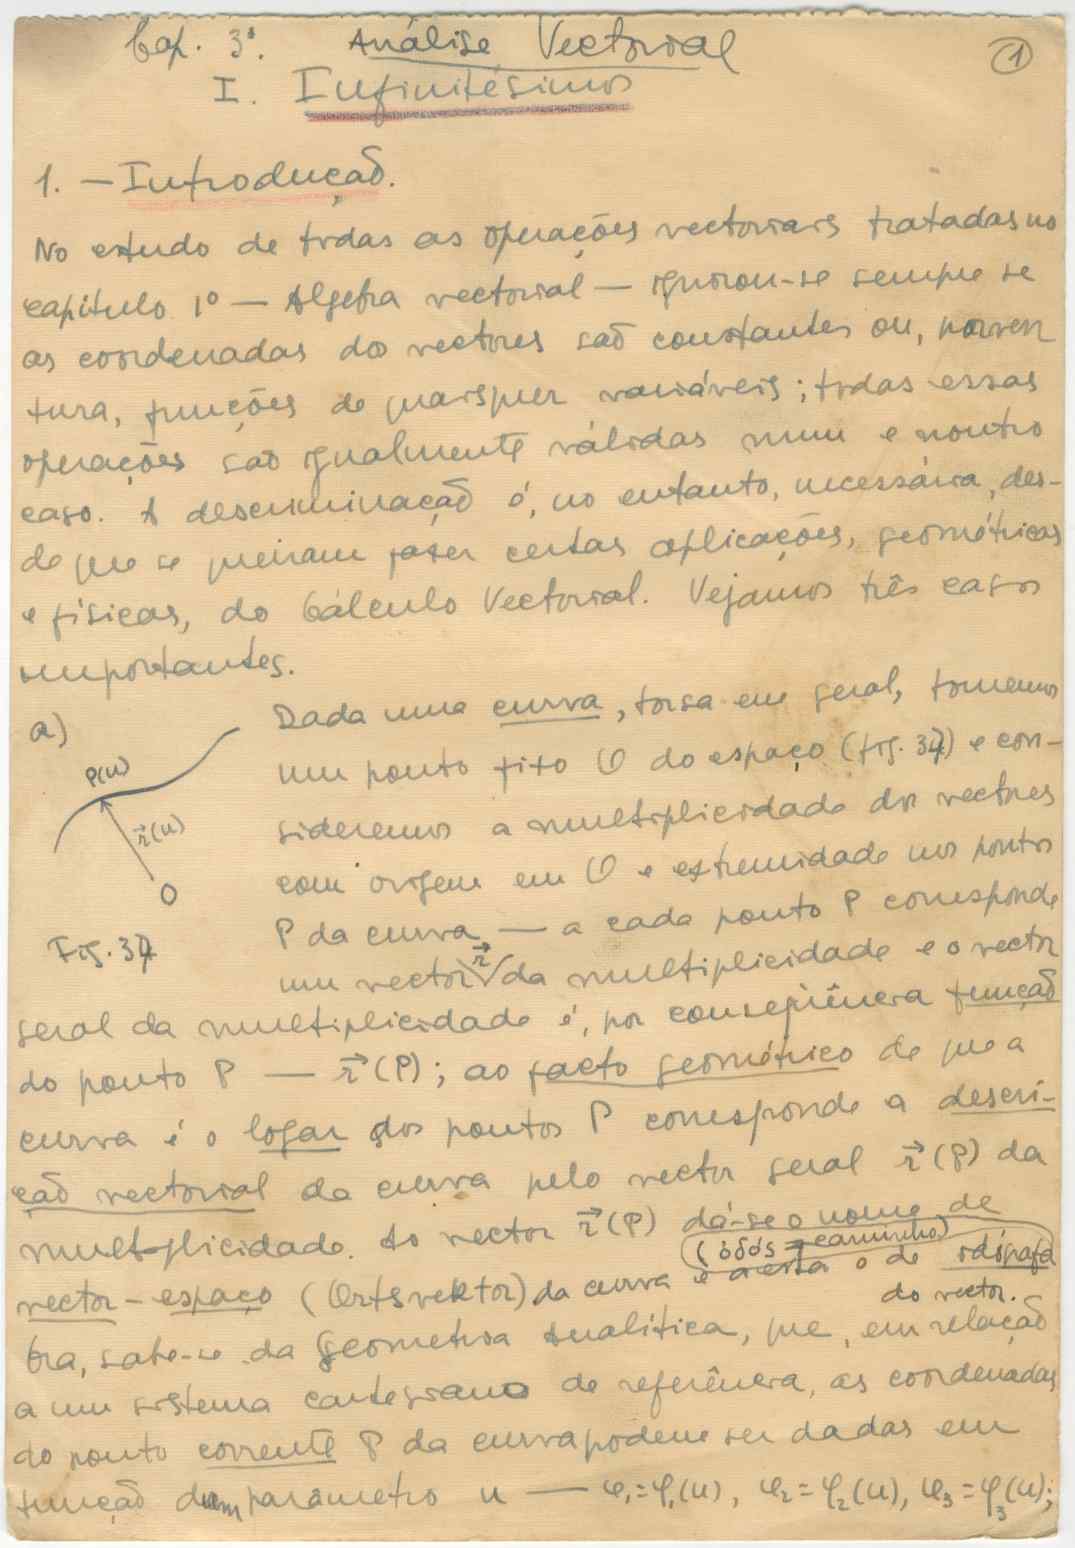 Cap. 3º. Análise Vectorial
①
I. Infinitésimos
1. — Introdução.
No estudo de todas as operações vectoriais tratadas no
capítulo 1º — Álgebra vectorial — ignorou-se sempre se
as coordenadas dos vectores são constantes ou, porven
tura, funções de quaisquer variáveis; todas essas
operações são igualmente válidas num e noutro
caso. A descriminação é, no entanto, necessária, des-
de que se queiram fazer certas aplicações, geométricas
e físicas, do Cálculo Vectorial. Vejamos três casos
importantes.
a)
Dada uma curva, torsa em geral, tomemos
um ponto fixo O do espaço (fig. 37) e con-
sideremos a multiplicidade dos vectores
com origem em O e extremidade nos pontos
P da curva — a cada ponto P corresponde
um vector r⃗ da multiplicidade e o vector
P(u)
r⃗(u)
O
Fig. 37
geral da multiplicidade é, por conseqüência função
do ponto P — r⃗(P); ao facto geométrico de que a
curva é o logar dos pontos P corresponde a descri-
ção vectorial da curva pelo vector geral r⃗(P) da
multiplicidade. Ao vector r⃗(P) dá-se o nome de
(ὁδός = caminho)
vector-espaço (Ortsvektor) da curva e a esta o de odógrafa
do vector.
Ora, sabe-se da Geometria Analítica, que, em relação
a um sistema cartesiano de referência, as coordenadas
do ponto corrente P da curva podem ser dadas em
função dum parâmetro u — φ₁=φ₁(u), φ₂=φ₂(u), φ₃=φ₃(u);